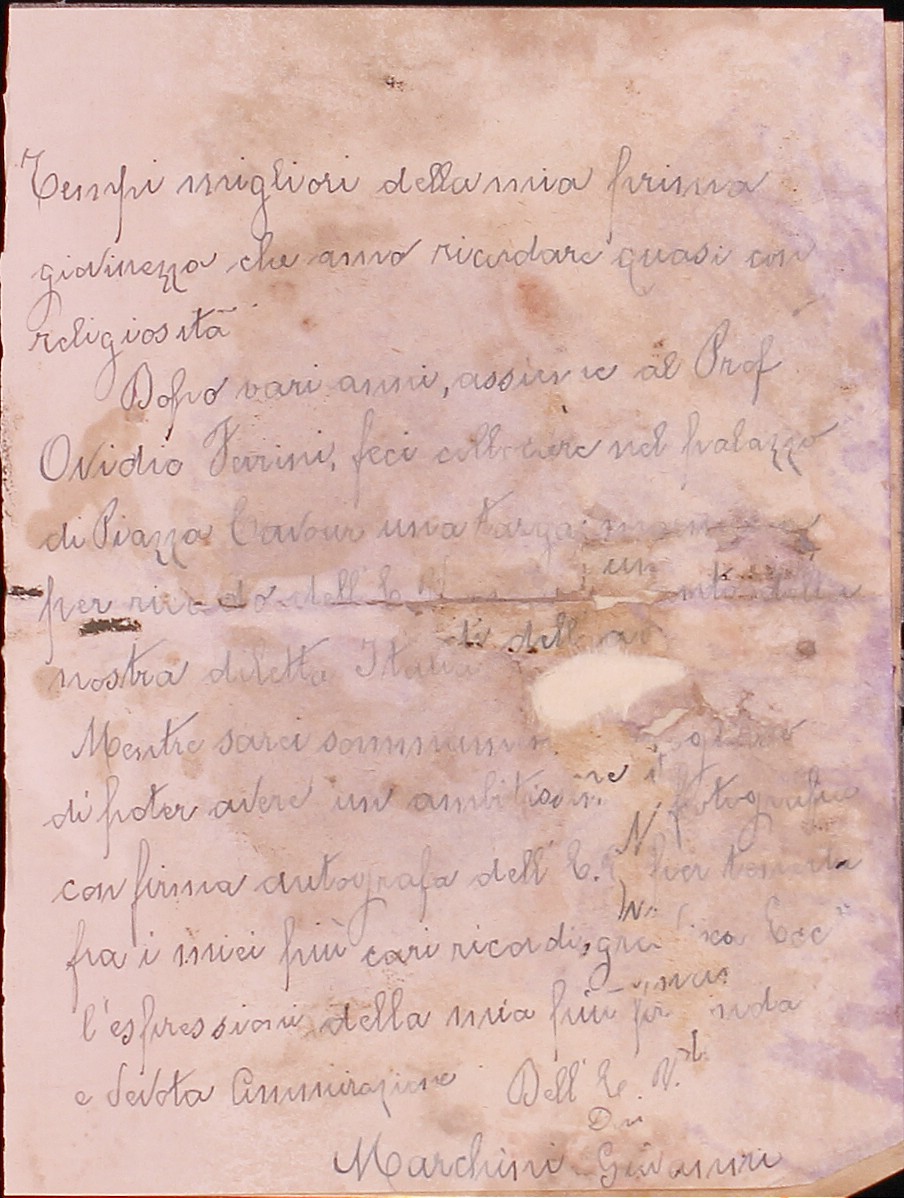 Tempi migliori della mia prima
giovinezza che amo ricordare quasi con
religiosità
Dopo vari anni, assieme al Prof
Ovidio Farini, feci collocare nel palazzo
di Piazza Cavour una targa
per ricordo dell'E. V. della
nostra diletta Italia
Mentre sarei
di poter avere un fotografia
con firma autografa dell'E. V. per tenerla
fra i miei più cari ricordi, Ecc
l'espressioni della mia più
e devota Ammirazione Dell'E. V.
Marchini Giovanni